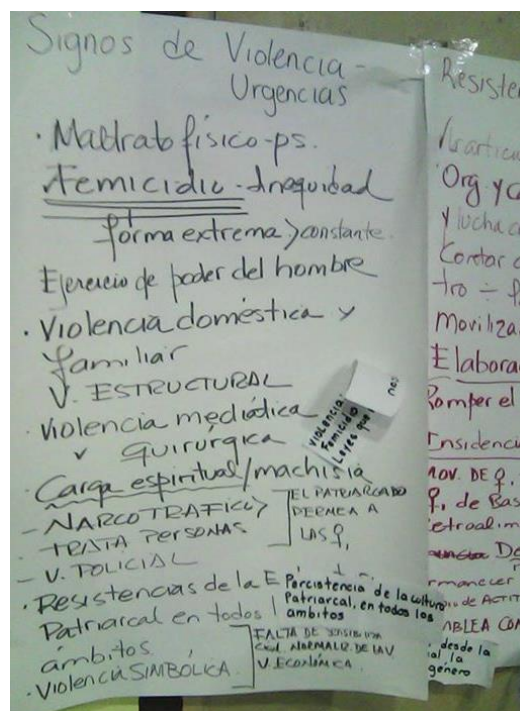 Signos de Violencia -
Urgencias
· Maltrato físico-ps.
Femicidio - Inequidad
forma extrema y constante.
Ejercicio de poder del hombre
· Violencia doméstica y
familiar
V. ESTRUCTURAL
· Violencia mediática
v Quirúrgica
violencia:
Femicidio
Leyes que
nos
· Carga espiritual/machista
- NARCOTRAFICO
EL PATRIARCADO
PERMEA A
LAS ♀,
- TRATA PERSONAS
- V. POLICIAL
· Resistencias de la E
Patriarcal en todos l
ámbitos.
Percistencia de la cultura
Patriarcal, en todos los
ambitos
· Violencia SIMBÓLICA.
FALTA DE
NORMALIZ. DE LA V
V. ECONÓMICA.
Resisten
Org. y
y lucha
tro = 
Moviliza
Elabora
Romper el
Insidenci
MOV. DE ♀.
♀, de Bas
etroalim
De
rmanecer
de ACTIT
MBLEA CON
desde la
ial la
género